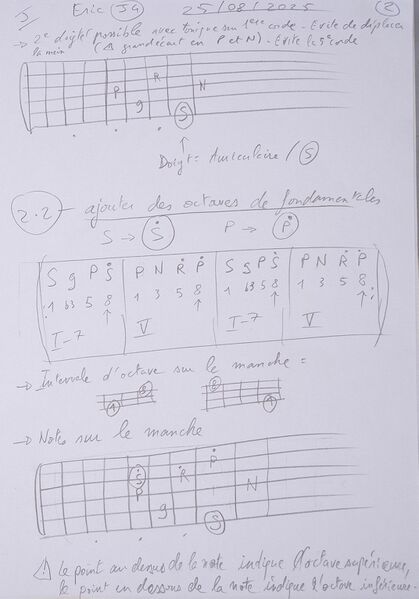 Eric (JG) 25/08/2025 (2)
→ 2e doigté possible avec tonique sur 1ère corde - Evite de déplacer
la main (⚠ grand écart en P et N) - Evite le 5e corde
R
P N
g S
Doigt = Auriculaire / S
2.2 - ajouter des octaves de fondamentales
S → Ṡ P → Ṗ
S g P Ṡ | P N Ṙ Ṗ | S g P Ṡ | P N Ṙ Ṗ
1 b3 5 8 | 1 3 5 8 | 1 b3 5 8 | 1 3 5 8
I-7 | V | I-7 | V
→ Intervale d'octave sur le manche =
8 8
1 1
→ Notes sur le manche
Ṗ
Ṡ Ṙ
P N
g
S
⚠ Le point au dessus de la note indique l'octave supérieure,
le point en dessous de la note indique l'octave inférieure.